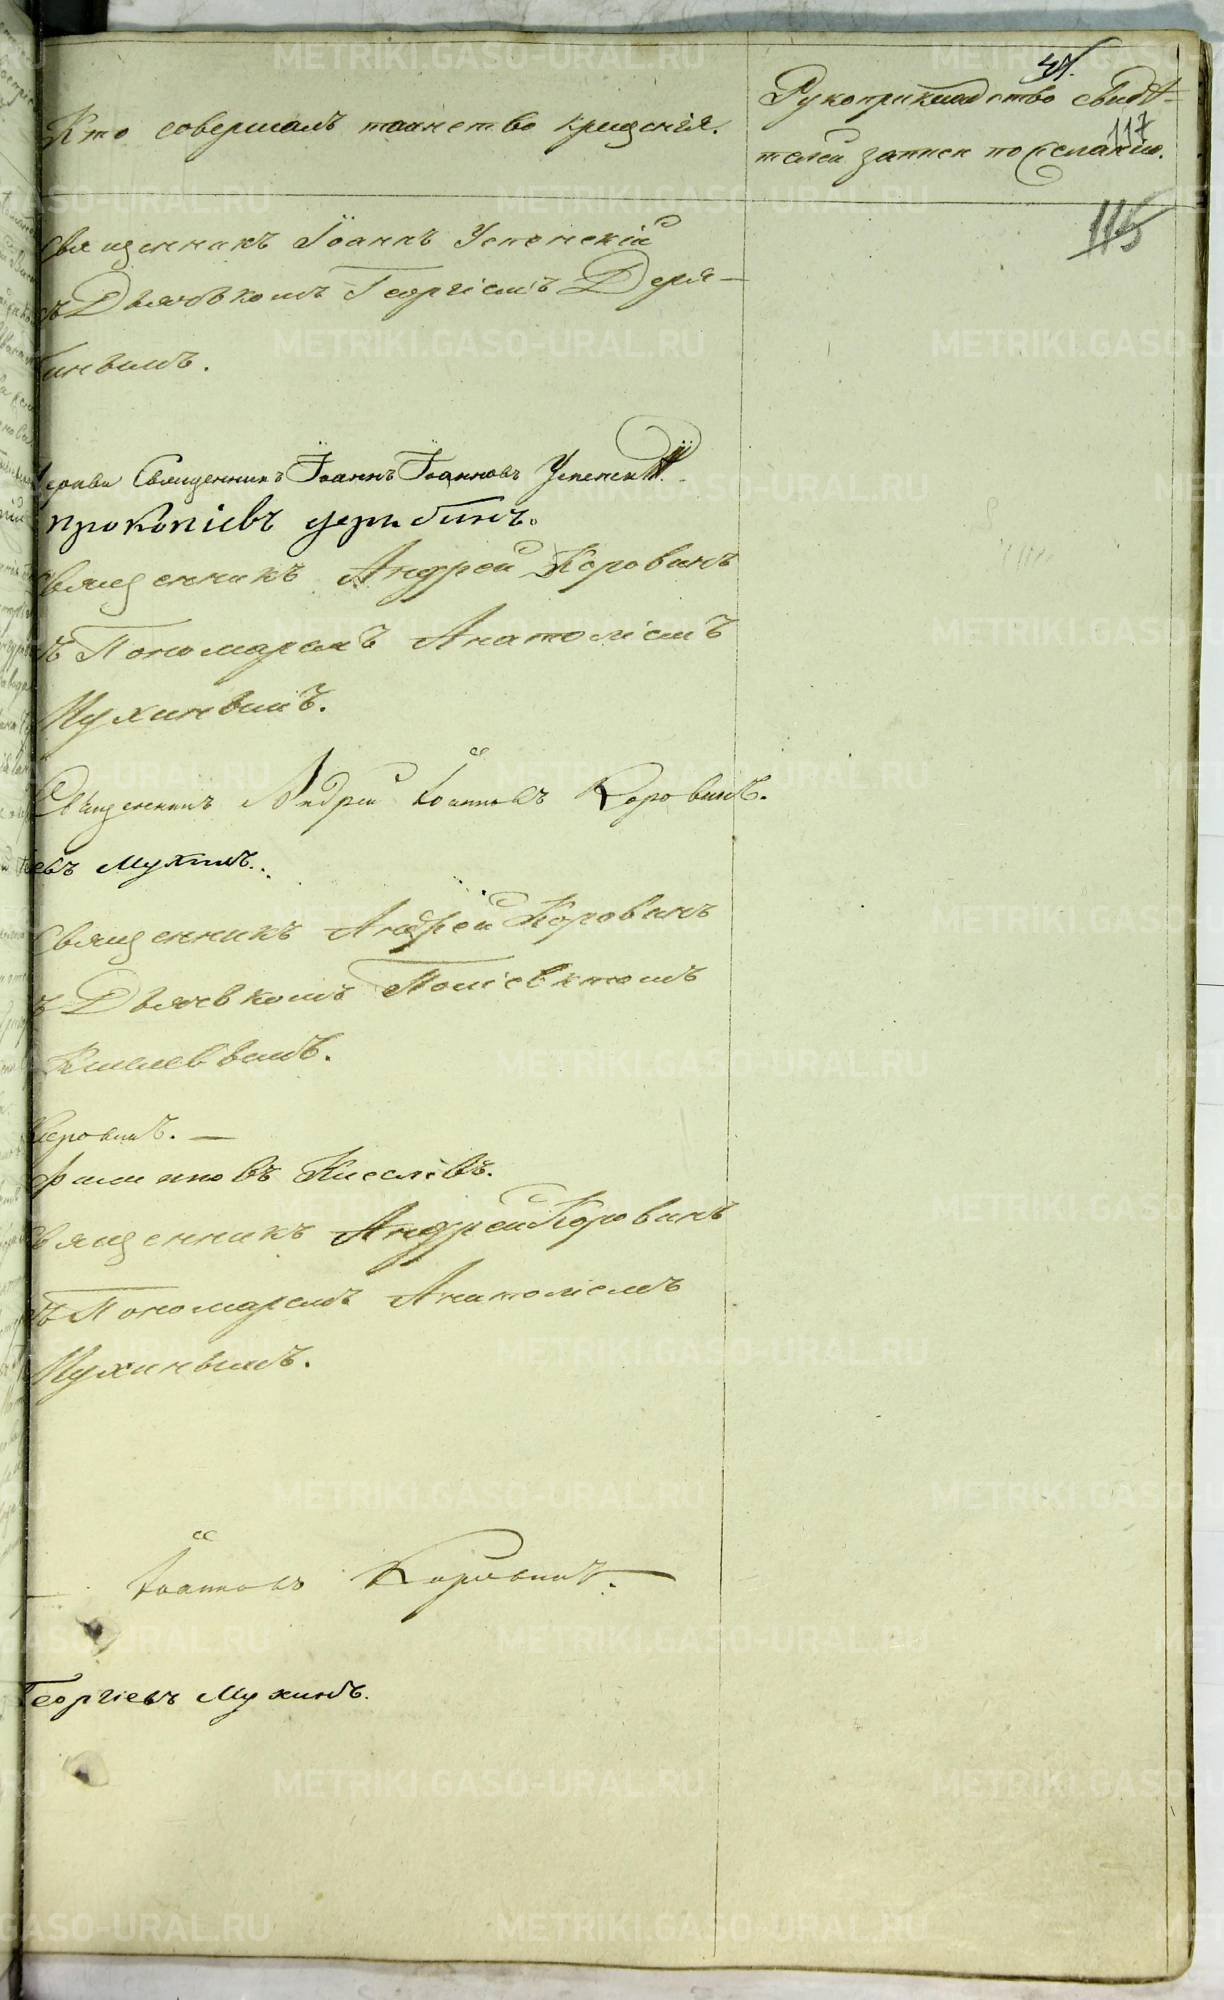 117
115
Кто совершалъ таинство крещенія.
Рукоприкладство свидѣ-
телей записи по желанію.
Священникъ Іоаннъ Успенскій
съ Дьячкомъ Георгіемъ Деря-
бинымъ.
Церкви Священникъ Іоаннъ Іоанновъ Успенскій.
Прокопіевъ Дерябинъ.
Священникъ Андрей Коровинъ
съ Пономаремъ Анатоліемъ
Мухинымъ.
Священникъ Андрей Іоанновъ Коровинъ.
евъ Мухинъ.
Священникъ Андрей Коровинъ
съ Дьячкомъ Поліевктомъ
Киселевымъ.
Коровинъ. —
Филиповъ Киселевъ.
Священникъ Андрей Коровинъ
съ Пономаремъ Анатоліемъ
Мухинымъ.
Іоанновъ Коровинъ.
Георгіевъ Мухинъ.
METRIKI.GASO-URAL.RU